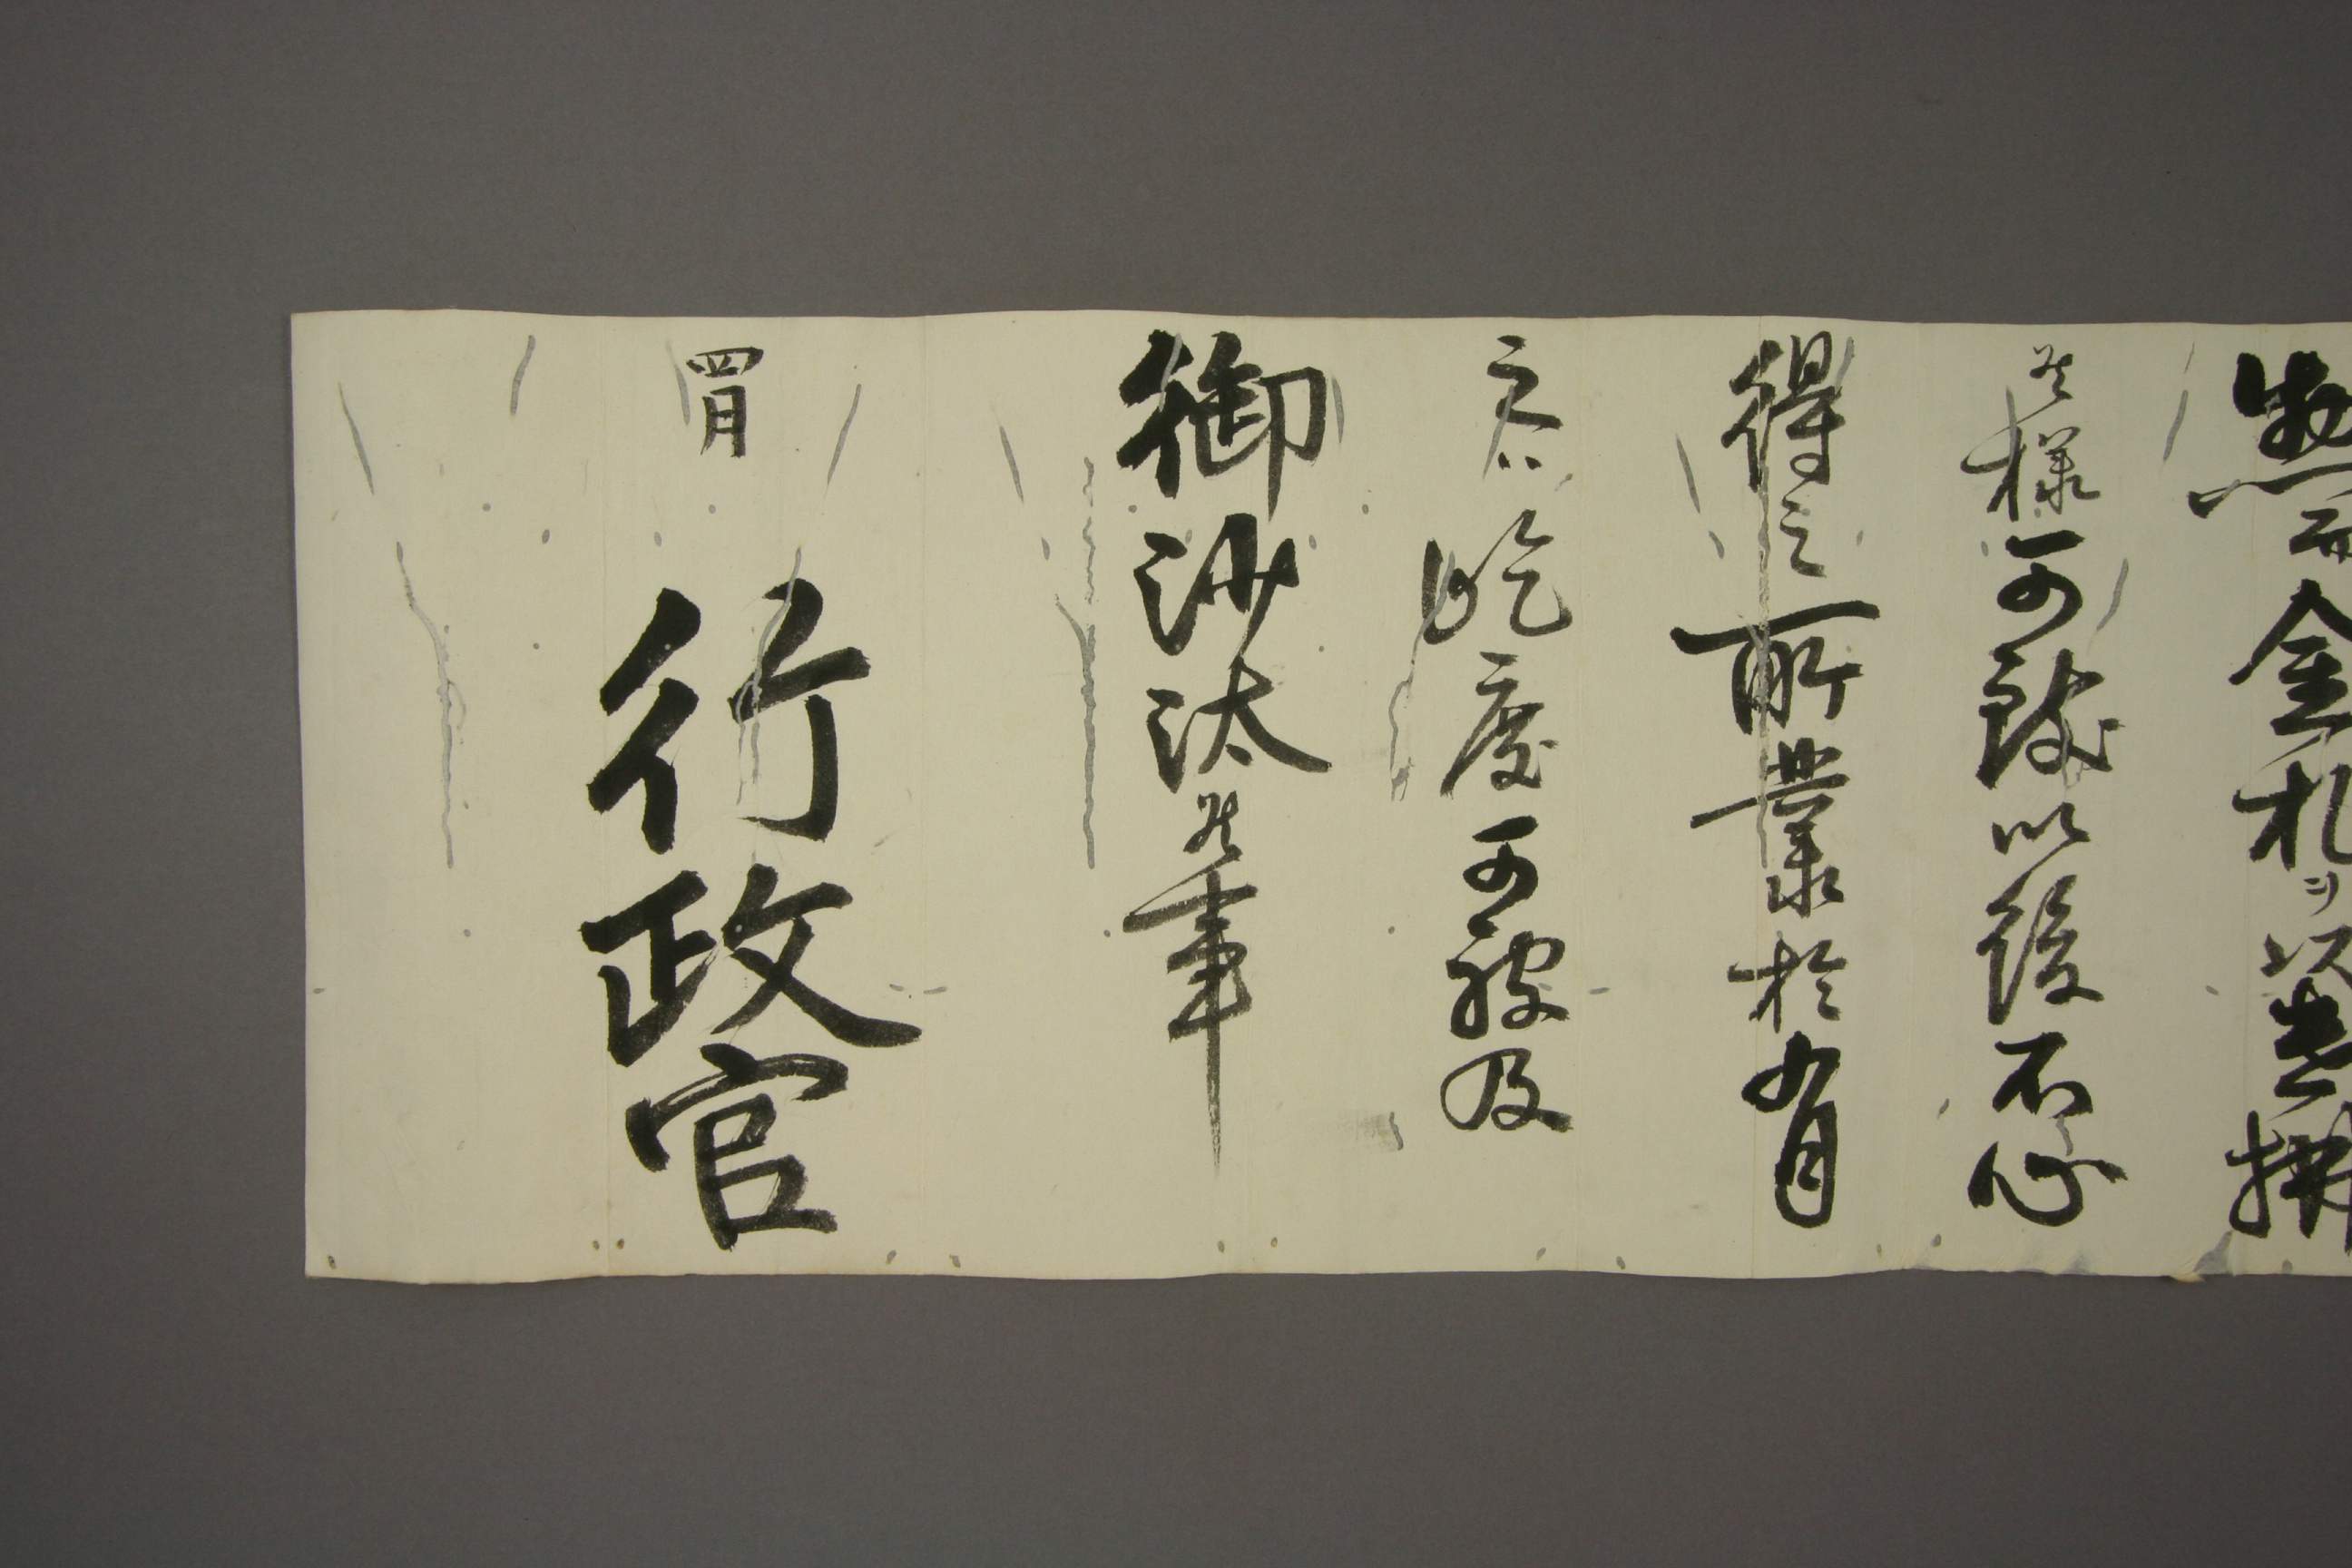 惣而金札ヲ以
候様可致以後不心
得之所業於有
之ハ屹度可被及
御沙汰候事
四月
行政官